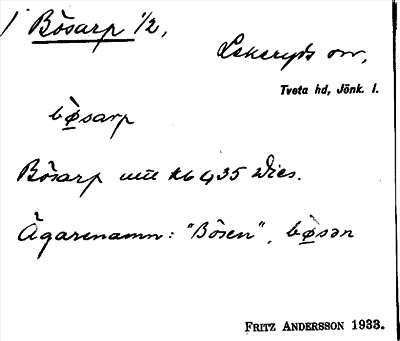 Bösarp 1/2,
Lekeryds sn,
Tveta hd, Jönk. l.
bø̀sarp
Bösarp utt kb 4,35 Dies.
Ägarenamn: "Bösen", bø̀sən
FRITZ ANDERSSON 1933.